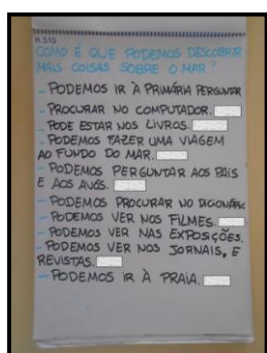 COMO É QUE PODEMOS DESCOBRIR
MAIS COISAS SOBRE O MAR?
- PODEMOS IR À PRIMÁRIA PERGUNTAR
- PROCURAR NO COMPUTADOR.
- PODE ESTAR NOS LIVROS.
- PODEMOS FAZER UMA VIAGEM
AO FUNDO DO MAR.
- PODEMOS PERGUNTAR AOS PAIS
E AOS AVÓS.
- PODEMOS PROCURAR NO DICIONÁRIO
- PODEMOS VER NOS FILMES.
- PODEMOS VER NAS EXPOSIÇÕES.
- PODEMOS VER NOS JORNAIS, E
REVISTAS.
- PODEMOS IR À PRAIA.